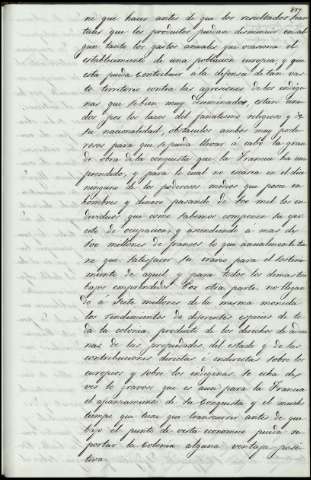 ne que hacer antes de que los resultados
tales que los productos puedan disminuir en al
gun tanto los gastos anuales que ocasiona el
establecimiento de una poblacion europea y que
esta pueda contribuir a la defensa de tan vas
to territorio contra las agresiones de los indige
nas que si bien muy diseminados, estan uni
dos por los lazos del fanatismo religioso y de
su nacionalidad, obstaculos ambos muy pode
rosos para que se pueda llevar á cabo la gran
de obra de la conquista que la Francia ha em
prendido, y para lo cual no escasea en el dia
ninguno de los poderosos medios que posee en
hombres y dinero pasando de mil los in
dividuos que como sabemos componen su ejer
cito de ocupacion, y ascendiendo a mas de
100 millones de francos lo que anualmente tie
ne que satisfacer su erario para el sosteni
miento de aquel y para todos los demas tra
bajos emprendidos. Por otra parte no llegan
do á siete millones de la misma moneda
los rendimientos de diferentes especies de to
da la colonia, producto de los derechos de adua
nas de las propiedades del estado y de las
contribuciones directas é indirectas sobre los
europeos y sobre los indigenas, se echa de
ver lo gravoso que es aun para la Francia
el afianzamiento de la Conquista, y el mucho
tiempo que tiene que transcurrir antes de que
bajo el punto de vista economico pueda re
portar la Colonia alguna ventaja posi
tiva.